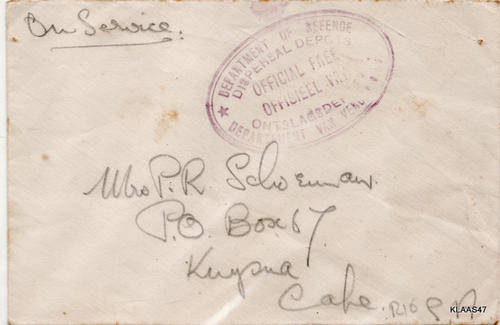 On Service.
DEPARTMENT OF DEFENCE
DISPERSAL DEPOTS
OFFICIAL FREE
OFFICIEEL VRY
ONTSLAGSDEP
DEPARTEMENT VAN VERD
Mrs P. R. Schoeman.
P.O. Box 67.
Knysna
Cape.
KLAAS47